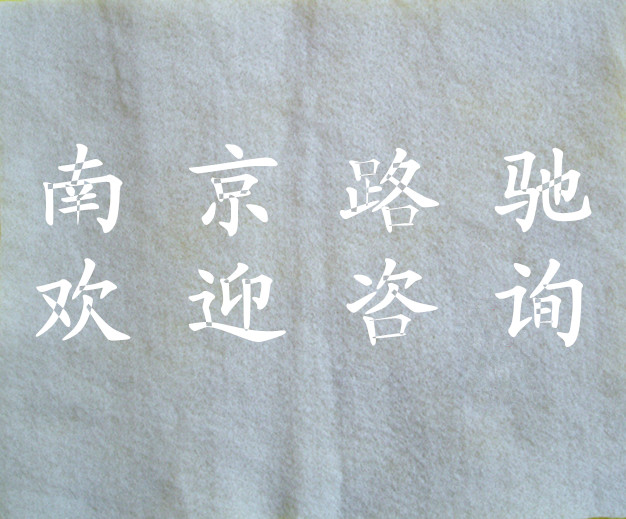 南京路驰
欢迎咨询